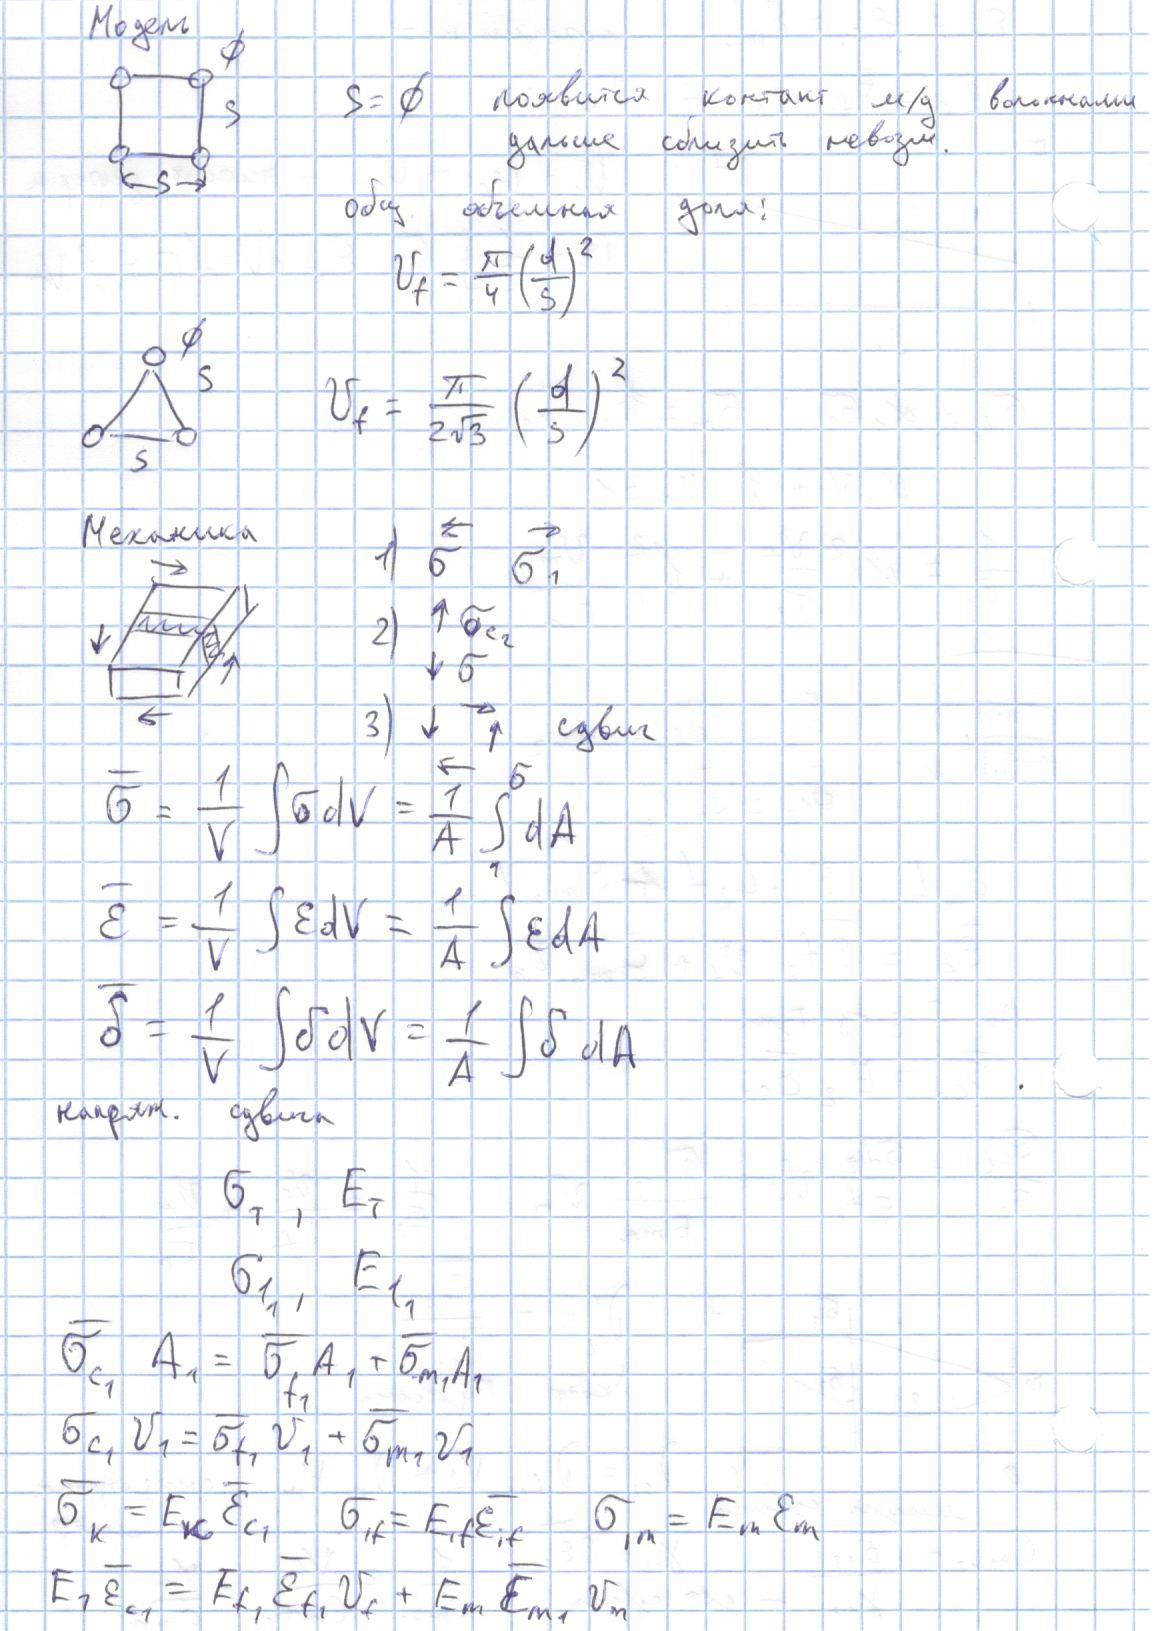 Модель
ϕ
S
S
S = ϕ появится контакт м/д волокнами
дальше сблизить невозм.
общ. объемная доля:
V_f = π/4 (d/s)²
ϕ
S
S
V_f = π/(2√3) (d/s)²
Механика
1) σ σ₁
2) ↑ σ_c₂
↓ σ
3) ↓ → ↑ сдвиг
←
σ̅ = 1/V ∫σdV = 1/A ∫ σ dA
ε̅ = 1/V ∫εdV = 1/A ∫εdA
δ̅ = 1/V ∫δdV = 1/A ∫δ dA
напряж. сдвига
σ_т , E_т
σ_11 , E_11
σ̅_c₁ A₁ = σ̅_f₁ A₁ + σ̅_m₁ A₁
σ_c₁ V₁ = σ̅_f₁ V₁ + σ̅_m₁ V₁
σ̅_к = E_к ε̅_c₁ σ_1f = E_1f ε̅_1f σ_1m = E_m ε_m
E₁ ε̅_c₁ = E_f₁ ε̅_f₁ V_f + E_m ε̅_m₁ V_m